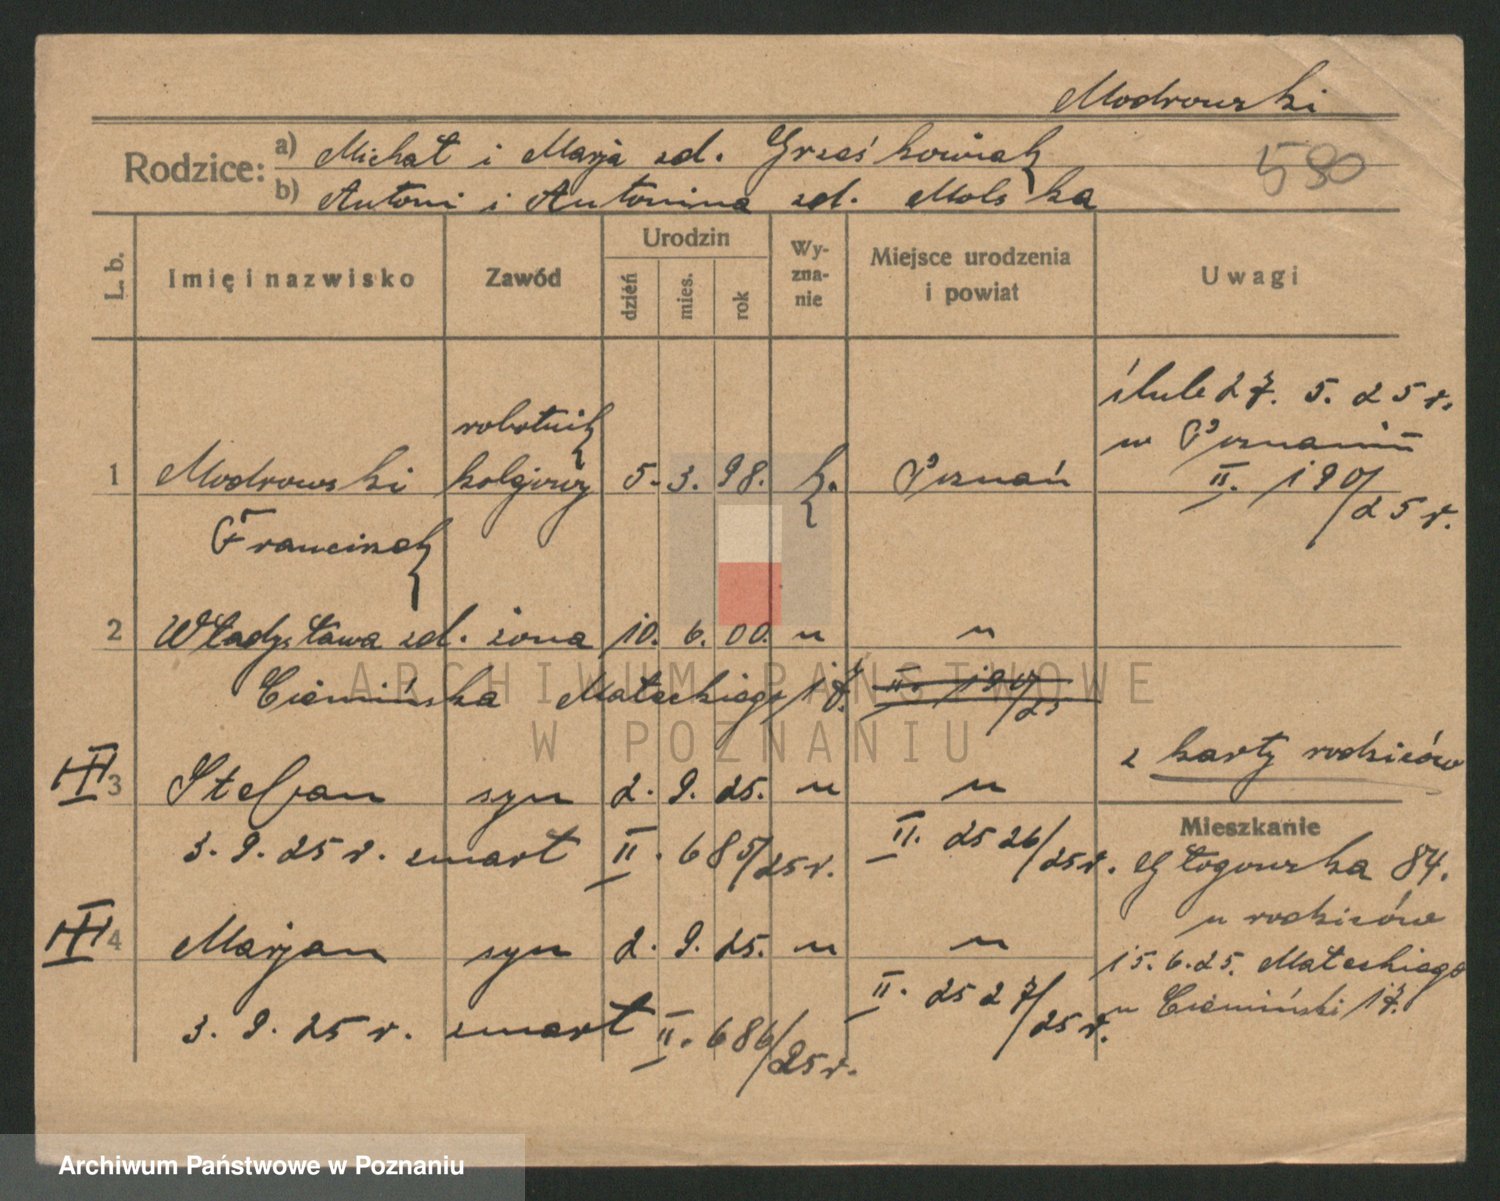 Modrowski
Rodzice: a) Michał i Marja zd. Grześkowiak
580
b) Antoni i Antonina zd. Molska
L. b.
Imię i nazwisko
Zawód
Urodzin
dzień
mies.
rok
Wy-
zna-
nie
Miejsce urodzenia
i powiat
Uwagi
ślub 27. 5. 25 r.
w Poznaniu
II. 190/25 r.
robotnik
1 Modrowski kolejowy 5. 3. 98. k. Poznań
Franciszek
2 Władysława zd. żona 10. 6. 00. " "
Ciemińska Mateckiego 17. II. 190/25
z karty rodziców
III 3 Stefan syn 2. 9. 25. " "
3. 9. 25 r. zmart II. 685/25 r. II. 2526/25 r.
Mieszkanie
Głogowska 84.
u rodziców
III 4 Marjan syn 2. 9. 25. " "
15. 6. 25. Mateckiego
u Ciemiński 17.
3. 9. 25 r. zmart II. 686/25 r. II. 2527/25 r.
ARCHIWUM PAŃSTWOWE
W POZNANIU
Archiwum Państwowe w Poznaniu